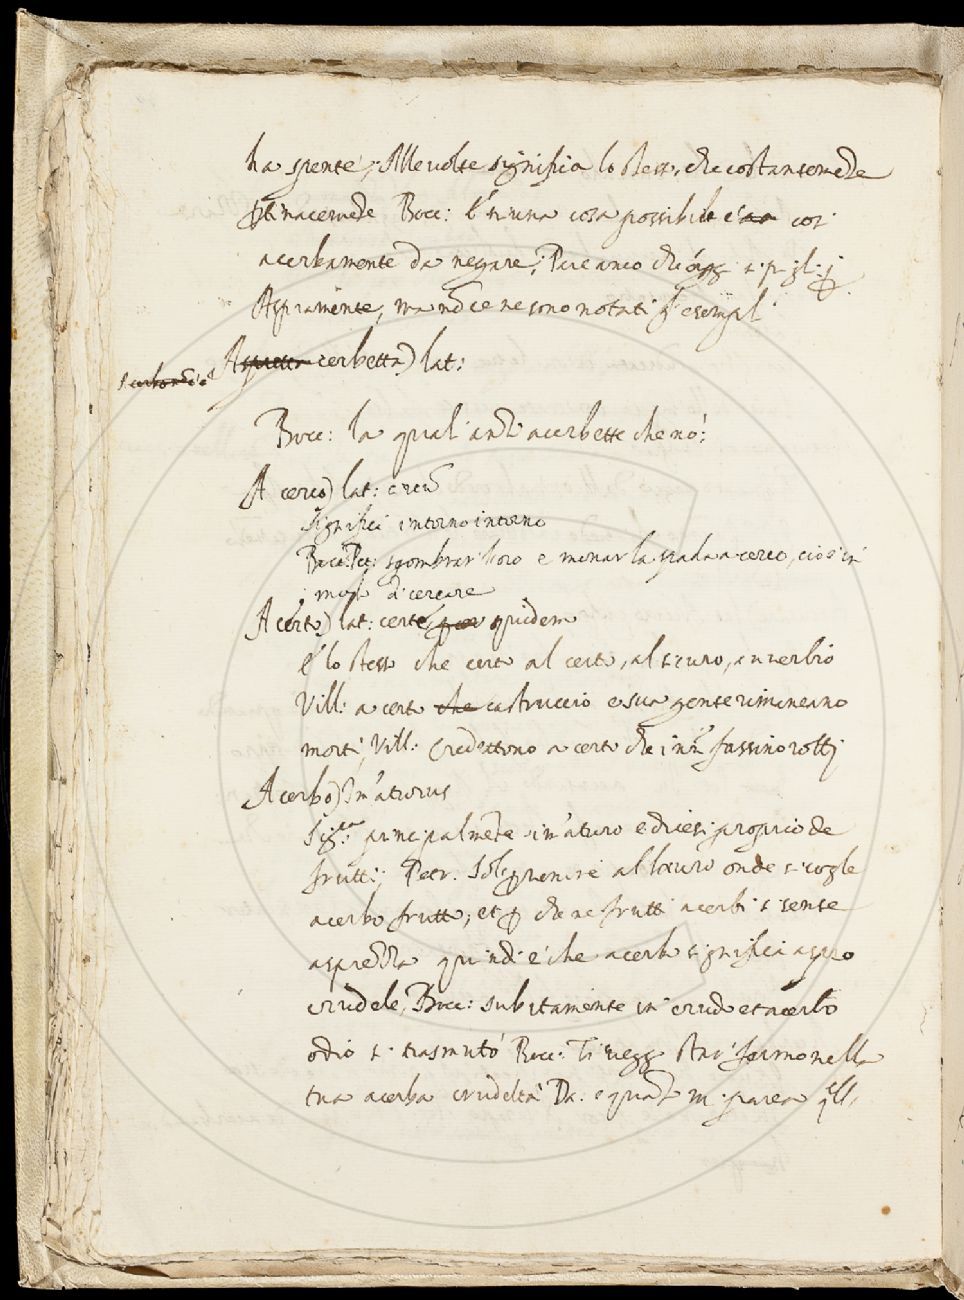 ha spente, Alle volte significa lo stesso, che costantemte
Boce: È niuna cosa possibile cosi
acerbamente da negare, Pare anco che
Aspramente, ma nō ce ne sono notati esempi
Acerbetta) lat:
Bocc: la qual' anzi acerbette che nò:
A cerco) lat: circū
Significa intorno intorno
Bocc: Pet: sgombrar l'oro e menar la spada a cerco, cioè in
modo di cercare
A certo) lat: certe quidem
È lo stesso che certo al certo, al sicuro, avverbio
Vill: a certo che castruccio e sua gente rimineano
morti, Vill: Credettono a certo che i fussino rotti
Acerbo) Im̄aturus
principalmēte im̄aturo e dicesi proprio de
frutti; Petr. Sol venire al lauro onde si cogle
acerbo frutto, et che ne frutti acerbi si sente
asprezza quindi è che acerbo significa aspro
crudele, Bocc: subitamente in crudo et acerbo
odio si trasmutò Bocc: Ti vegg
tua acerba crudeltà Da: e quāto mi parea